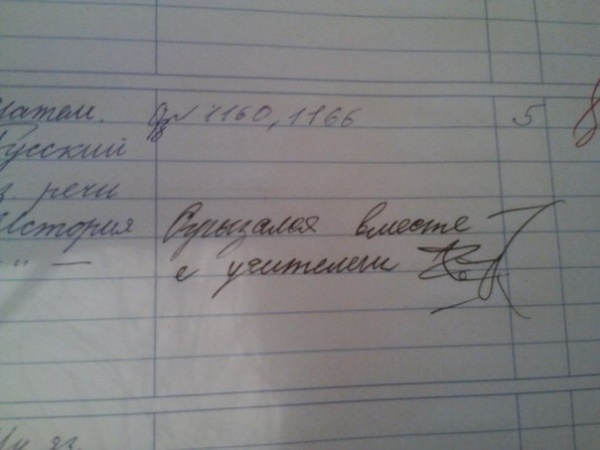 матем. № 1160, 1166 5
Русский
р. речи
История Огрызался вместе
" — с учителем